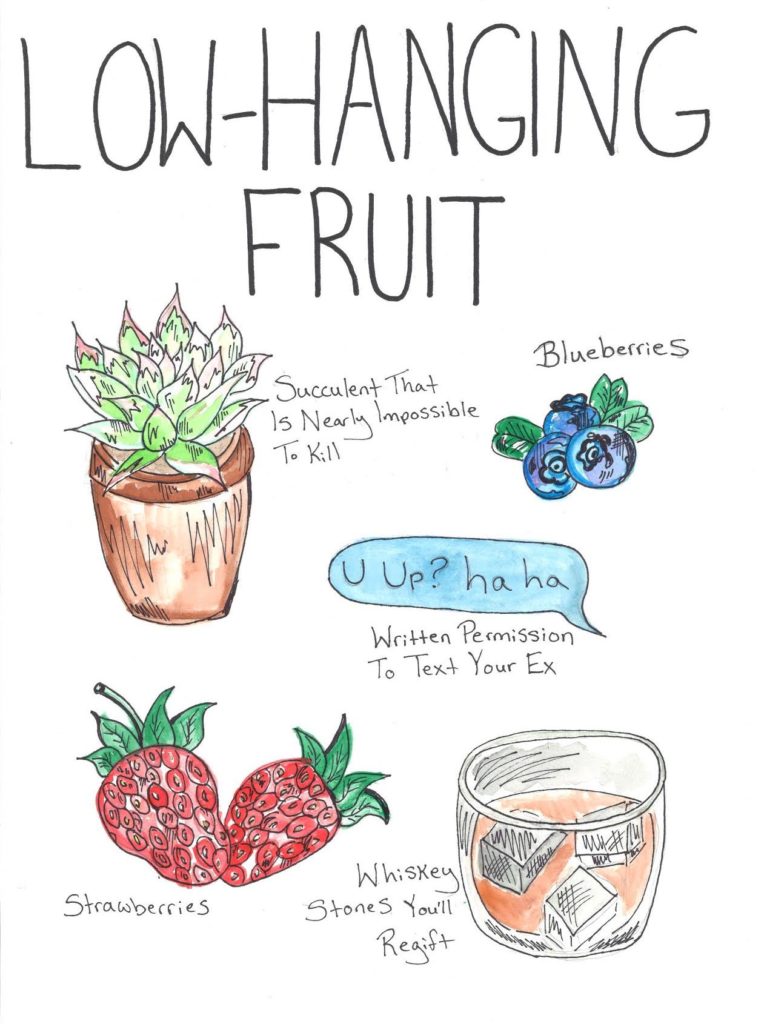 LOW-HANGING
FRUIT
Succulent That
Is Nearly Impossible
To Kill
Blueberries
U Up? ha ha
Written Permission
To Text Your Ex
Strawberries
Whiskey
Stones You'll
Regift